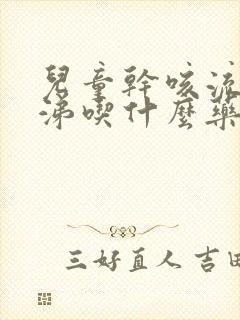 兒童幹咳流
涕喫什麼藥
三好直人 吉田